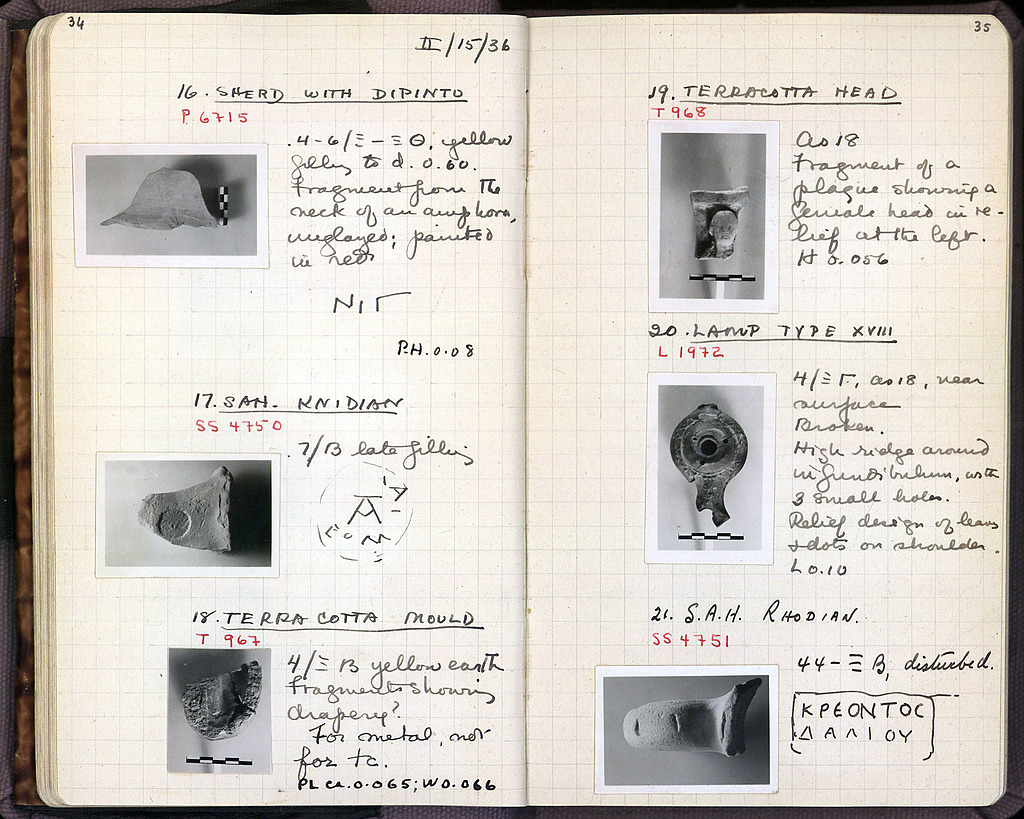 34
II/15/36
16. SHERD WITH DIPINTO
P 6715
4-6/Ξ-Ξ Θ, yellow
filling to d. 0.60.
Fragment from the
neck of an amphora,
unglazed; painted
in red
ΝΙΓ
P.H. 0.08
17. SAH. KNIDIAN
SS 4750
7/B late filling
Α
18. TERRA COTTA MOULD
T 967
4/Ξ B yellow earth
Fragment showing
drapery?
For metal, not
for tc.
PL ca. 0.065; W 0.066
35
19. TERRACOTTA HEAD
T 968
as 18
Fragment of a
plaque showing a
female head in re-
lief at the left.
H 0.056
20. LAMP TYPE XVIII
L 1972
4/Ξ Γ, as 18, near
surface
Broken.
High ridge around
infundibulum, with
3 small holes.
Relief design of leaves
+ dots on shoulder.
L 0.10
21. S.A.H. RHODIAN.
SS 4751
44-Ξ B, disturbed.
ΚΡΕΟΝΤΟC
ΔΑΛΙΟΥ